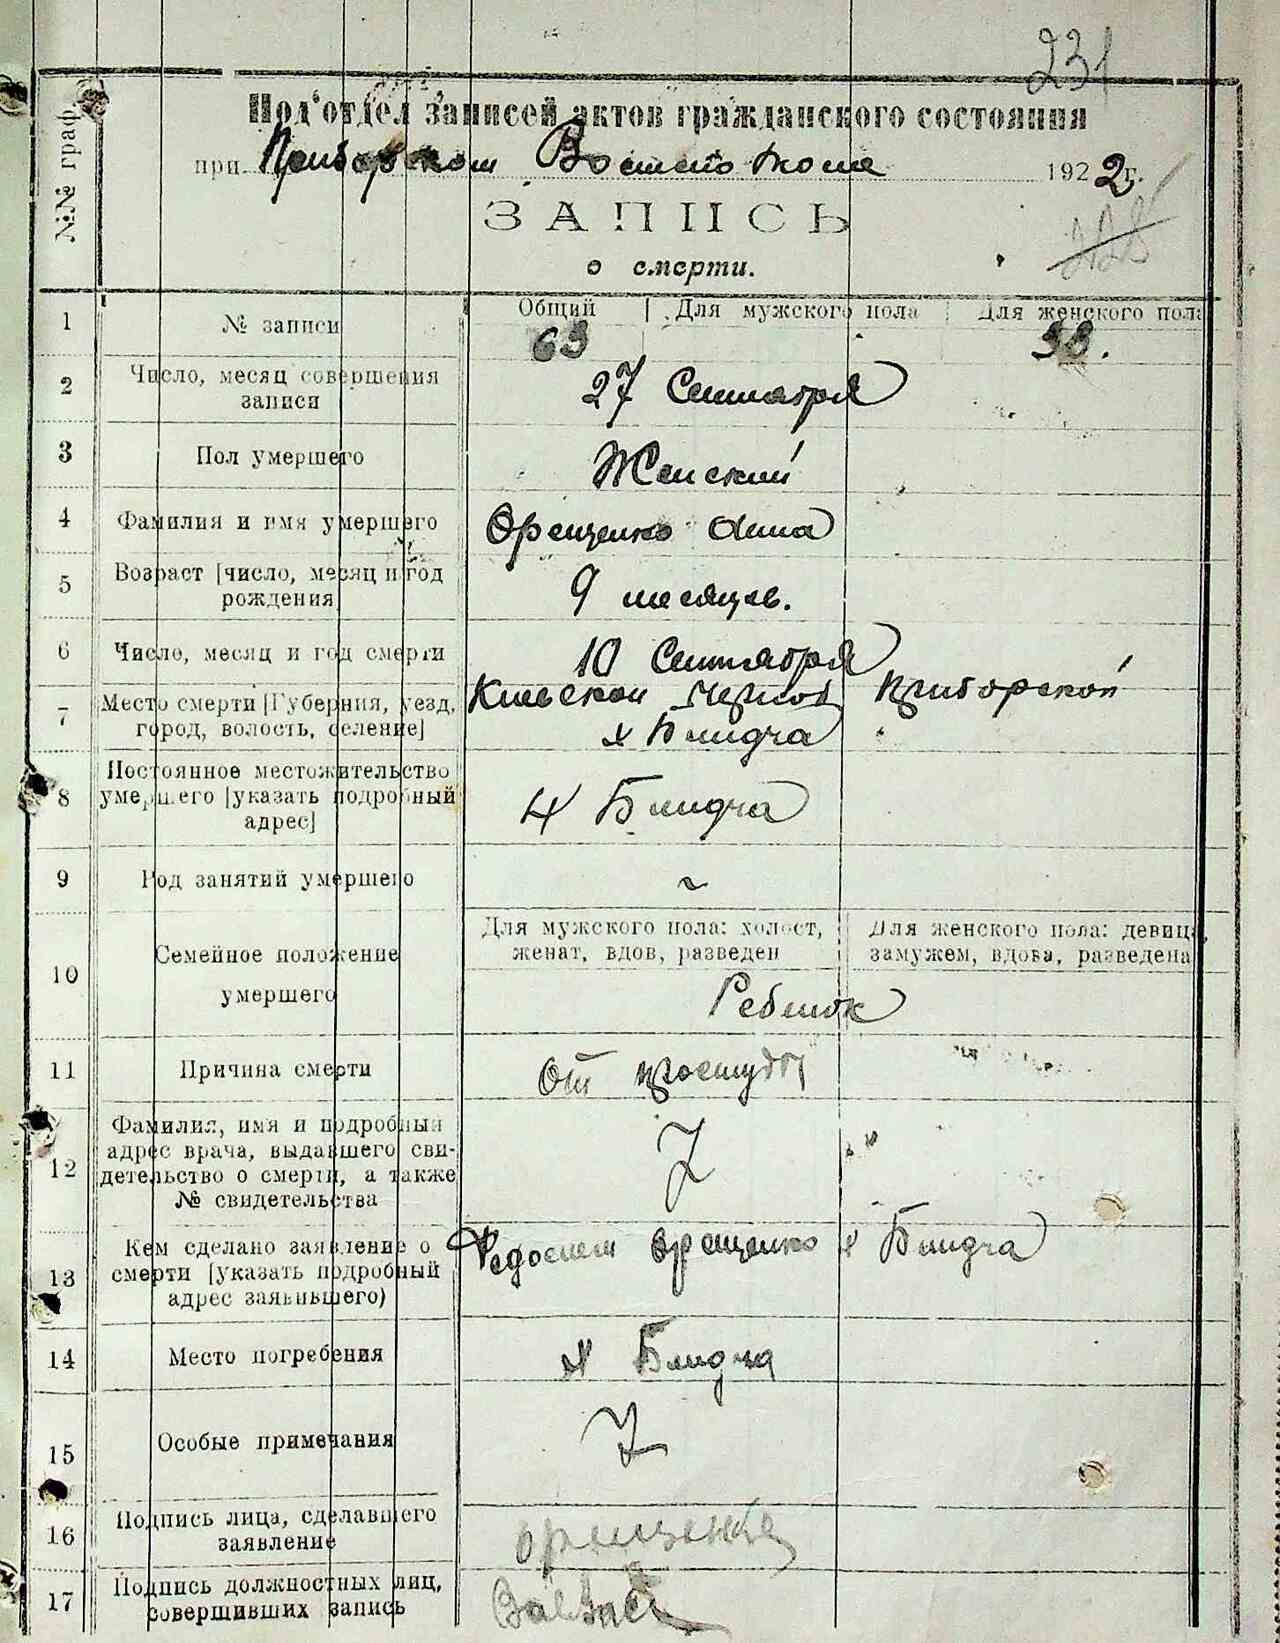 231
№№ граф.
Под'отдел записей актов гражданского состояния
при Приборском 1922 г.
ЗАПИСЬ
о смерти.
1 № записи Общий Для мужского пола Для женского пола
63 33.
2 Число, месяц совершения записи 27 Сентября
3 Пол умершего Женский
4 Фамилия и имя умершего Орещенко Анна
5 Возраст [число, месяц и год рождения 9 месяцев.
6 Число, месяц и год смерти 10 Сентября
7 Место смерти [Губерния, уезд, город, волость, селение] Киевской Чернов Приборской
х Блидча
8 Постоянное местожительство умершего [указать подробный адрес] Х Блидча
9 Род занятий умершего ~
10 Семейное положение умершего
Для мужского пола: холост, женат, вдов, разведен
Для женского пола: девица, замужем, вдова, разведена
Ребенок
11 Причина смерти От простуды
12 Фамилия, имя и подробный адрес врача, выдавшего свидетельство о смерти, а также № свидетельства
13 Кем сделано заявление о смерти [указать подробный адрес заявившего) Федосием Орещенко х Блидча
14 Место погребения х Блидча
15 Особые примечания
16 Подпись лица, сделавшего заявление Орещенко
17 Подпись должностных лиц, совершивших запись